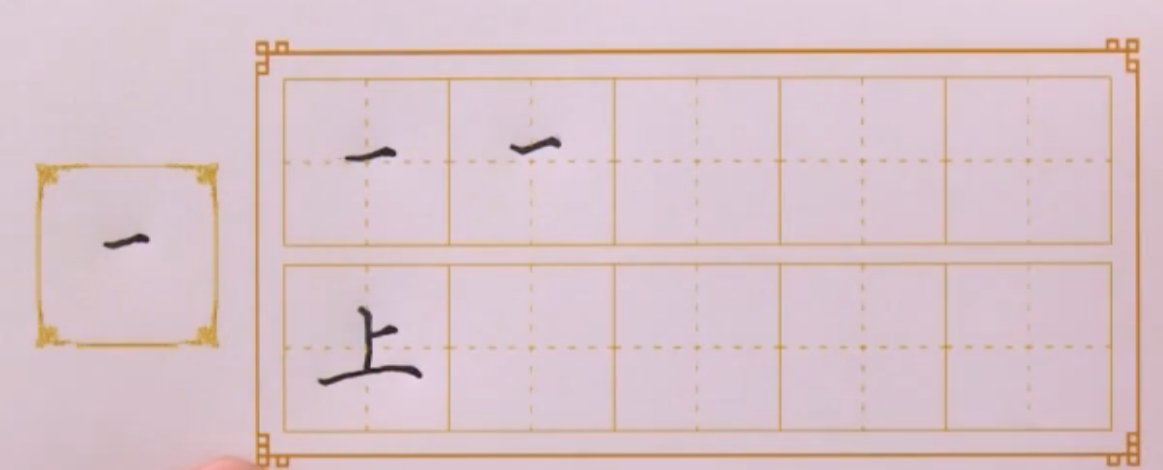 一
一 一
上